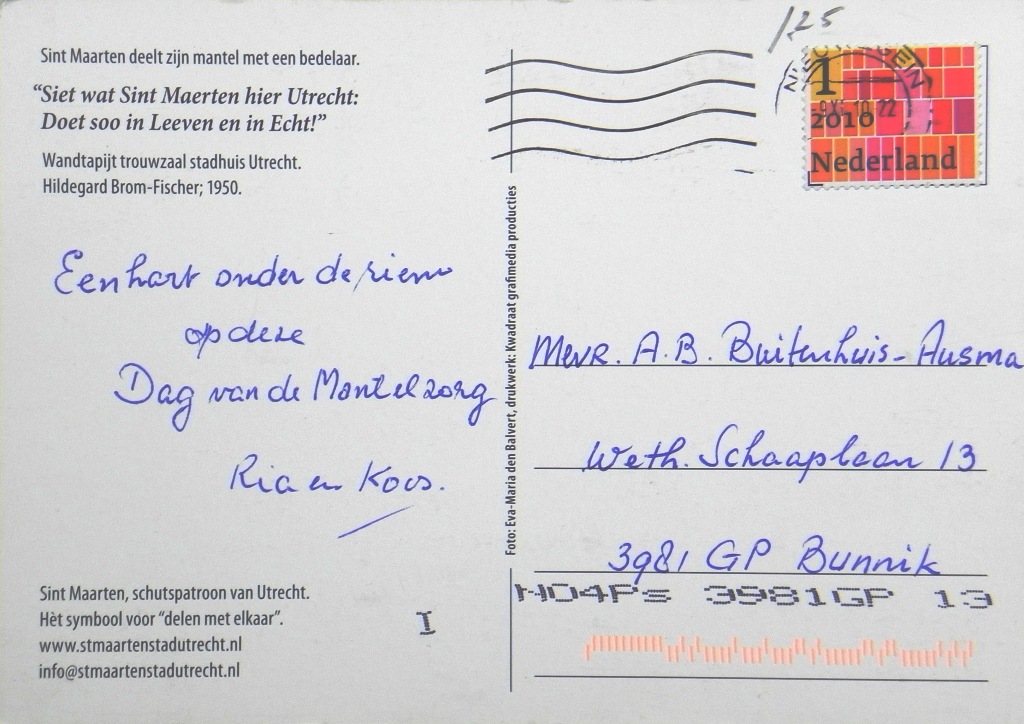 Sint Maarten deelt zijn mantel met een bedelaar.
“Siet wat Sint Maerten hier Utrecht:
Doet soo in Leeven en in Echt!”
Wandtapijt trouwzaal stadhuis Utrecht.
Hildegard Brom-Fischer; 1950.
Een hart onder de riem
op deze
Dag van de Mantelzorg
Ria en Koos.
Sint Maarten, schutspatroon van Utrecht.
Hèt symbool voor “delen met elkaar”.
www.stmaartenstadutrecht.nl
info@stmaartenstadutrecht.nl
I
Foto: Eva-Maria den Balvert, drukwerk: Kwadraat grafimedia producties
1,25
1
2010
Nederland
Mevr. A.B. Buitenhuis-Ausma
Weth. Schaaplaan 13
3981 GP Bunnik
N04Ps 3981GP 13